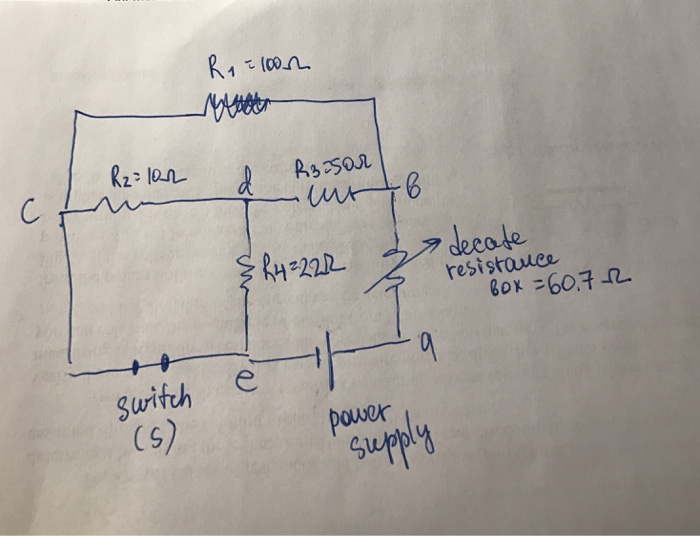 R1 = 100Ω
R2 = 10Ω
d
R3 = 50Ω
C
B
R4 = 22Ω
decate
resistance
Box = 60.7 Ω
a
e
switch
(S)
power
supply